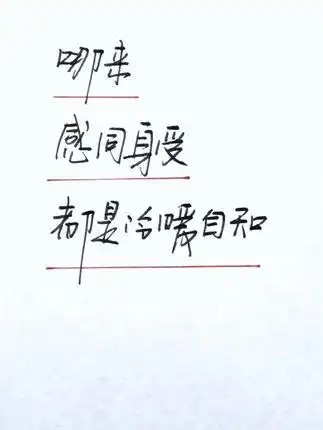 哪来
感同身受
都是冷暖自知